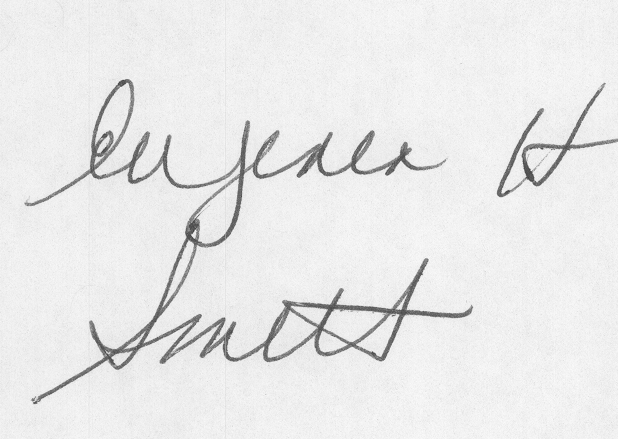 Eugenea H
Smett